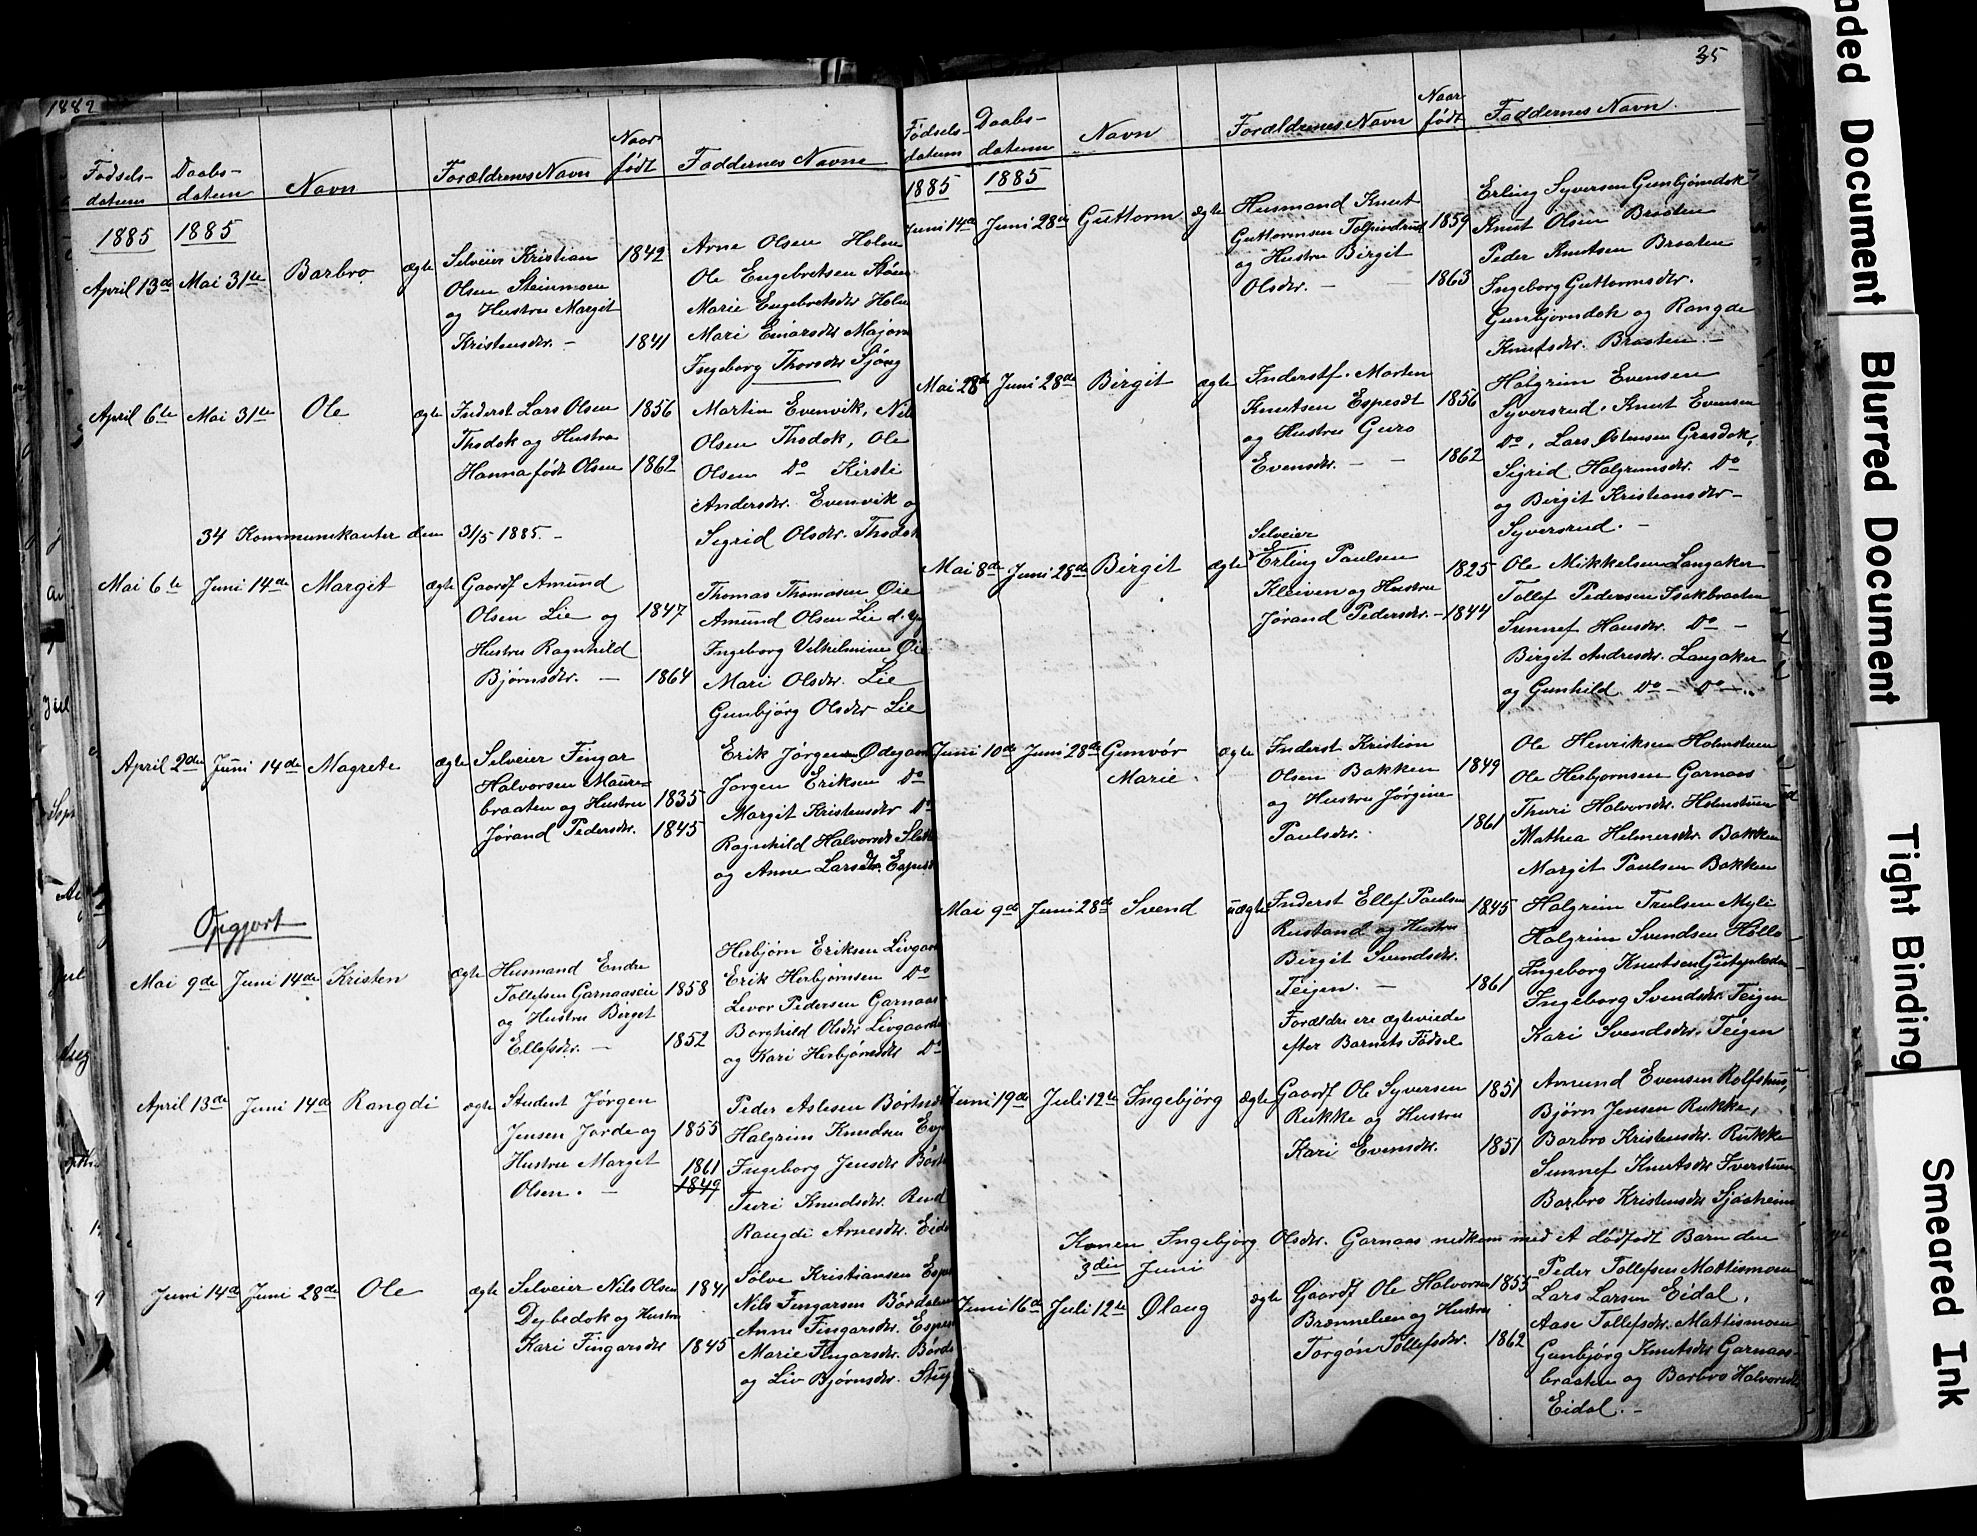 1882
Fødsels-
datum
Daabs-
datum
Navn
Forældrenes Navn
Naar
født
Faddernes Navne
1885
1885
April 13de Mai 31te Barbro ægte
Selveier Kristian 1842
Olsen Steinmoen
og Hustru Margit
Kristensdtr. - 1841
Arne Olsen Holm
Ole Engebretsen
Marie Engebretsdtr Holm
Mari Einarsdtr
Ingeborg Thorsdtr
April 6te Mai 31te Ole ægte
Inderst Lars Olsen 1856
Thodok og Hustru
Hanna født Olsen 1862
Martin Evenvik, Nils
Olsen Thodok, Ole
Olsen Do Kirsti
Andersdtr. Evenvik og
Sigrid Olsdtr. Thodok
34 Kommunikanter den 31/5 1885. -
Mai 6te Juni 14de Margit ægte
Gaardf Amund
Olsen Lie og 1847
Hustru Ragnhild
Bjørnsdtr. - 1864
Thomas Thomasen Øie
Amund Olsen Lie d.
Ingeborg Vilhelmine Øie
Mari Olsdtr. Lie
Gunbjørg Olsdtr Lie
April 2den Juni 14de Magrete ægte
Selveier Fingar
Halvorsen Maure-
braaten og Hustru 1835
Jørand Pedersdtr. 1845
Erik Jørgensen Ødegaard
Jørgen Eriksen Do
Margit Kristensdtr Do
Ragnhild Halvorsdtr
og Anne Larsdtr.
Opgjort
Mai 9de Juni 14de Kristen ægte
Husmand Endre
Tollefsen Garnaaseie 1858
og Hustru Birget
Ellefsdtr. - 1852
Herbjørn Eriksen Livgard
Erik Herbjørnsen Do
Levor Pedersen Garnaas
Borghild Olsdtr Livgaard
og Kari Herbjørnsdtr Do
April 13de Juni 14de Rangdi ægte
Student Jørgen
Jensen Jorde og 1855
Hustru Marget 1861
Olsen. - 1849
Peder Aslesen
Halgrim Knudsen
Ingeborg Jensdtr
Turi Knudsdtr.
Rangdi Arnesdtr.
Juni 14de Juni 28de Ole ægte
Selveier Nils Olsen 1841
Dybedok og Hustru
Kari Fingarsdtr 1845
Sølve Kristiansen
Nils Fingarsen
Anne Fingarsdtr.
Marie Fingarsdtr.
og Liv Bjørnsdtr.
35
Fødsels-
datum
Daabs-
datum
Navn
Forældrenes Navn
Naar
født
Faddernes Navn
1885
1885
Juni 14de Juni 28de Guttorm ægte
Husmand Knut
Guttormsen Tolpinrud 1859
og Hustru Birgit
Olsdtr. - - 1863
Erling Syversen Gunbjørndok
Knut Olsen Braaten
Peder Knutsen Braaten
Ingeborg Guttormsdtr.
Gunbjørndok og Rangde
Knutsdtr. Braaten -
Mai 28de Juni 28de Birgit ægte
Inderstf. Morten
Knutsen Espesæt 1856
og Hustru Guro
Evensdtr. - - 1862
Halgrim Evensen
Syversrud. Knut Evensen
Do, Lars Østensen Grasdok,
Sigrid Halgrimsdtr. Do
og Birgit Kristiansdtr -
Syversrud. -
Mai 8de Juni 28de Birgit ægte
Selveier
Erling Paulsen 1825
Kleiven og Hustru
Jørand Pedersdtr. - 1844
Ole Mikkelsen Langaker
Tollef Pedersen Isakbraaten
Sunnef Hansdtr. Do -
Birgit Andresdtr. Langaker
og Gunhild Do - Do -
Juni 10de Juni 28de Gunvor
Marie ægte
Inderst Kristian
Olsen Bakken 1849
og Hustru Jørgine
Paulsdtr. 1861
Ole Henriksen Holmstuen
Ole Herbjørnsen Garnaas
Thuri Halvorsdtr. Holmstuen
Mathea Helmersdtr. Bakken
Margit Paulsen Bakken
Mai 9de Juni 28de Svend uægte
Inderst Ellef Paulsen 1845
Rustand og Hustru
Birgit Svendsdtr.
Teigen. - 1861
Forældre ere ægteviede
efter Barnets Fødsel
Halgrim Trulsen Myli
Halgrim Svendsen Hollo
Ingeborg Knutsen
Ingeborg Svendsdtr. Teigen
Kari Svendsdtr. Teigen
Juni 19de Juli 12te Ingebjørg ægte
Gaardf Ole Syversen 1851
Rukke og Hustru
Kari Evensdtr. 1851
Amund Evensen Rolfshus,
Bjørn Jensen Rukke,
Barbro Kristensdtr. Rukke
Sunnef Knutsdtr Iverstuen
Barbro Kristensdtr Sjaaheim
Konen Ingebjørg Olsdtr. Garnaas nedkom med et dødfødt Barn den
3die Juni
Juni 16de Juli 12te Olaug ægte
Gaardf Ole Halvorsen 1855
Brænnelien og Hustru
Torgon Tollefsdtr. 1862
Peder Tollefsen Mattismoen
Lars Larsen Eidal,
Aase Tollefsdtr. Mattismoen
Gunbjørg Knutsdtr Garnaas-
braaten og Barbro Halvorsdtr
Eidal. -
Document
Blurred Document
Tight Binding
Smeared Ink